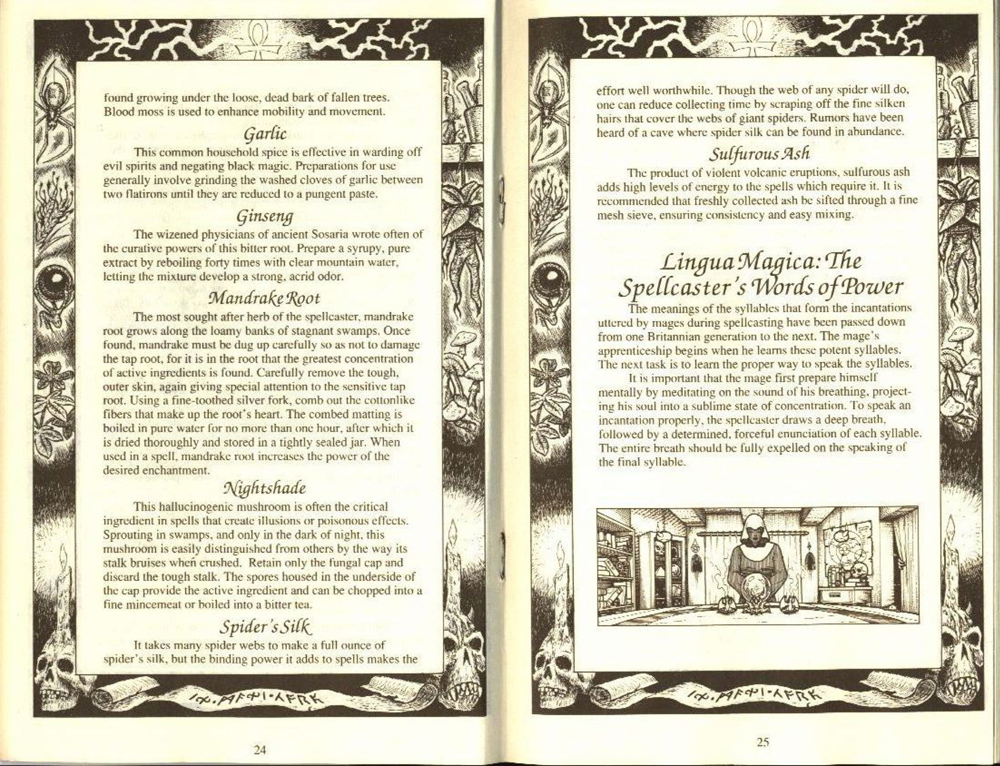 found growing under the loose, dead bark of fallen trees.
Blood moss is used to enhance mobility and movement.
Garlic
This common household spice is effective in warding off
evil spirits and negating black magic. Preparations for use
generally involve grinding the washed cloves of garlic between
two flatirons until they are reduced to a pungent paste.
Ginseng
The wizened physicians of ancient Sosaria wrote often of
the curative powers of this bitter root. Prepare a syrupy, pure
extract by reboiling forty times with clear mountain water,
letting the mixture develop a strong, acrid odor.
Mandrake Root
The most sought after herb of the spellcaster, mandrake
root grows along the loamy banks of stagnant swamps. Once
found, mandrake must be dug up carefully so as not to damage
the tap root, for it is in the root that the greatest concentration
of active ingredients is found. Carefully remove the tough,
outer skin, again giving special attention to the sensitive tap
root. Using a fine-toothed silver fork, comb out the cottonlike
fibers that make up the root's heart. The combed matting is
boiled in pure water for no more than one hour, after which it
is dried thoroughly and stored in a tightly sealed jar. When
used in a spell, mandrake root increases the power of the
desired enchantment.
Nightshade
This hallucinogenic mushroom is often the critical
ingredient in spells that create illusions or poisonous effects.
Sprouting in swamps, and only in the dark of night, this
mushroom is easily distinguished from others by the way its
stalk bruises when crushed. Retain only the fungal cap and
discard the tough stalk. The spores housed in the underside of
the cap provide the active ingredient and can be chopped into a
fine mincemeat or boiled into a bitter tea.
Spider's Silk
It takes many spider webs to make a full ounce of
spider's silk, but the binding power it adds to spells makes the
24
effort well worthwhile. Though the web of any spider will do,
one can reduce collecting time by scraping off the fine silken
hairs that cover the webs of giant spiders. Rumors have been
heard of a cave where spider silk can be found in abundance.
Sulfurous Ash
The product of violent volcanic eruptions, sulfurous ash
adds high levels of energy to the spells which require it. It is
recommended that freshly collected ash be sifted through a fine
mesh sieve, ensuring consistency and easy mixing.
Lingua Magica: The
Spellcaster's Words of Power
The meanings of the syllables that form the incantations
uttered by mages during spellcasting have been passed down
from one Britannian generation to the next. The mage's
apprenticeship begins when he learns these potent syllables.
The next task is to learn the proper way to speak the syllables.
It is important that the mage first prepare himself
mentally by meditating on the sound of his breathing, project-
ing his soul into a sublime state of concentration. To speak an
incantation properly, the spellcaster draws a deep breath,
followed by a determined, forceful enunciation of each syllable.
The entire breath should be fully expelled on the speaking of
the final syllable.
25